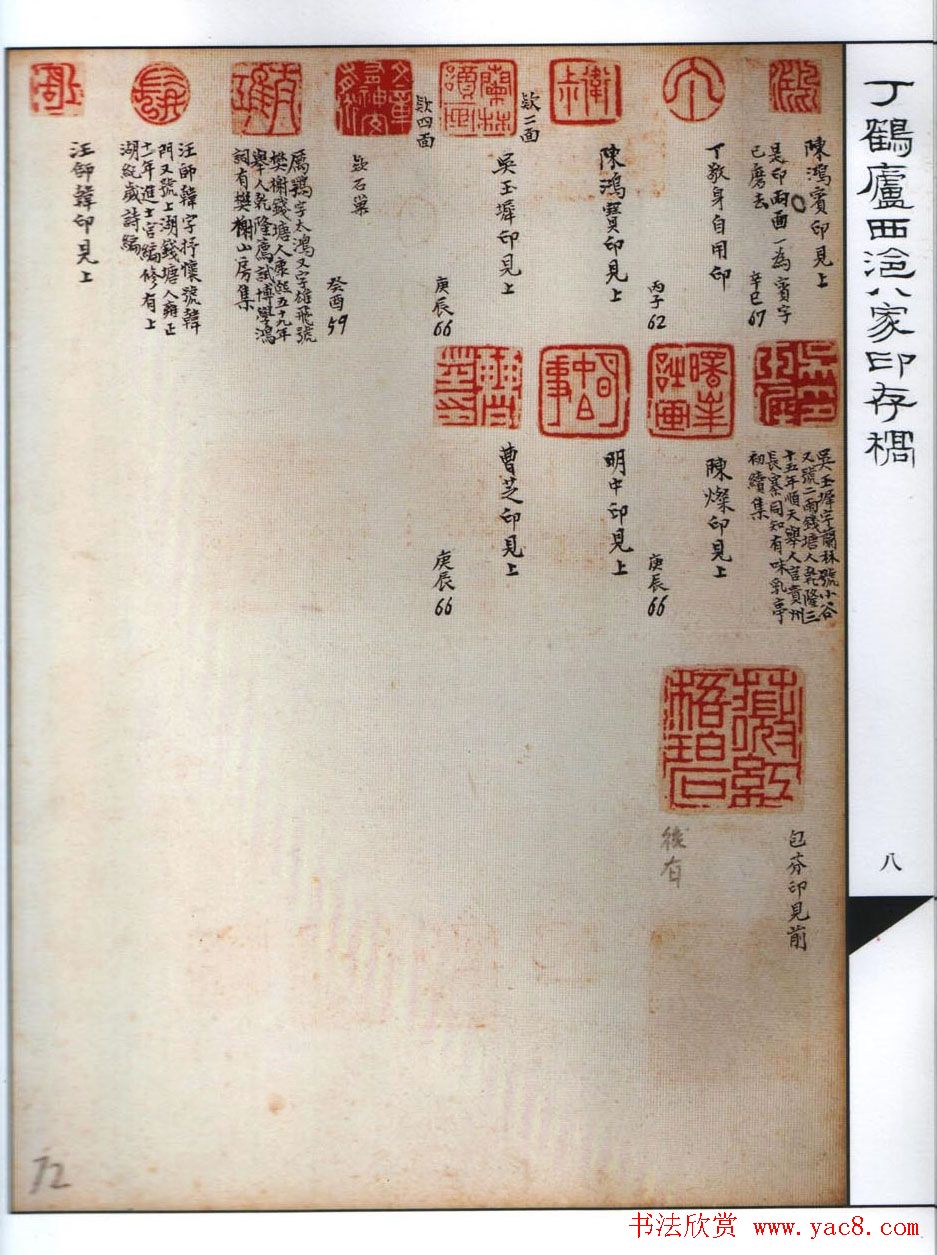 丁鶴廬西泠八家印存稿
八
陳鴻賓印見上
是印兩面一為賓字
已磨去
辛巳67
丁敬身自用印
陳鴻寶印見上
丙子62
款二面
吳玉墀印見上
款四面
庚辰66
癸酉59
厲鶚字太鴻又字雄飛號
樊榭錢塘人康熙五十九年
舉人乾隆薦試博學鴻
詞有樊榭山房集
汪師韓字抒懷號韓
門又號上湖錢塘人雍正
十一年進士官編修有上
湖紀歲詩編
汪師韓印見上
吳玉墀字蘭林號小谷
又號二雨錢塘人乾隆三
十五年順天舉人官貴州
長寨同知有味乳亭
初續集
陳燦印見上
庚辰66
明中印見上
曹芝印見上
庚辰66
包芬印見前
後有
72
书法欣赏 www.yac8.com